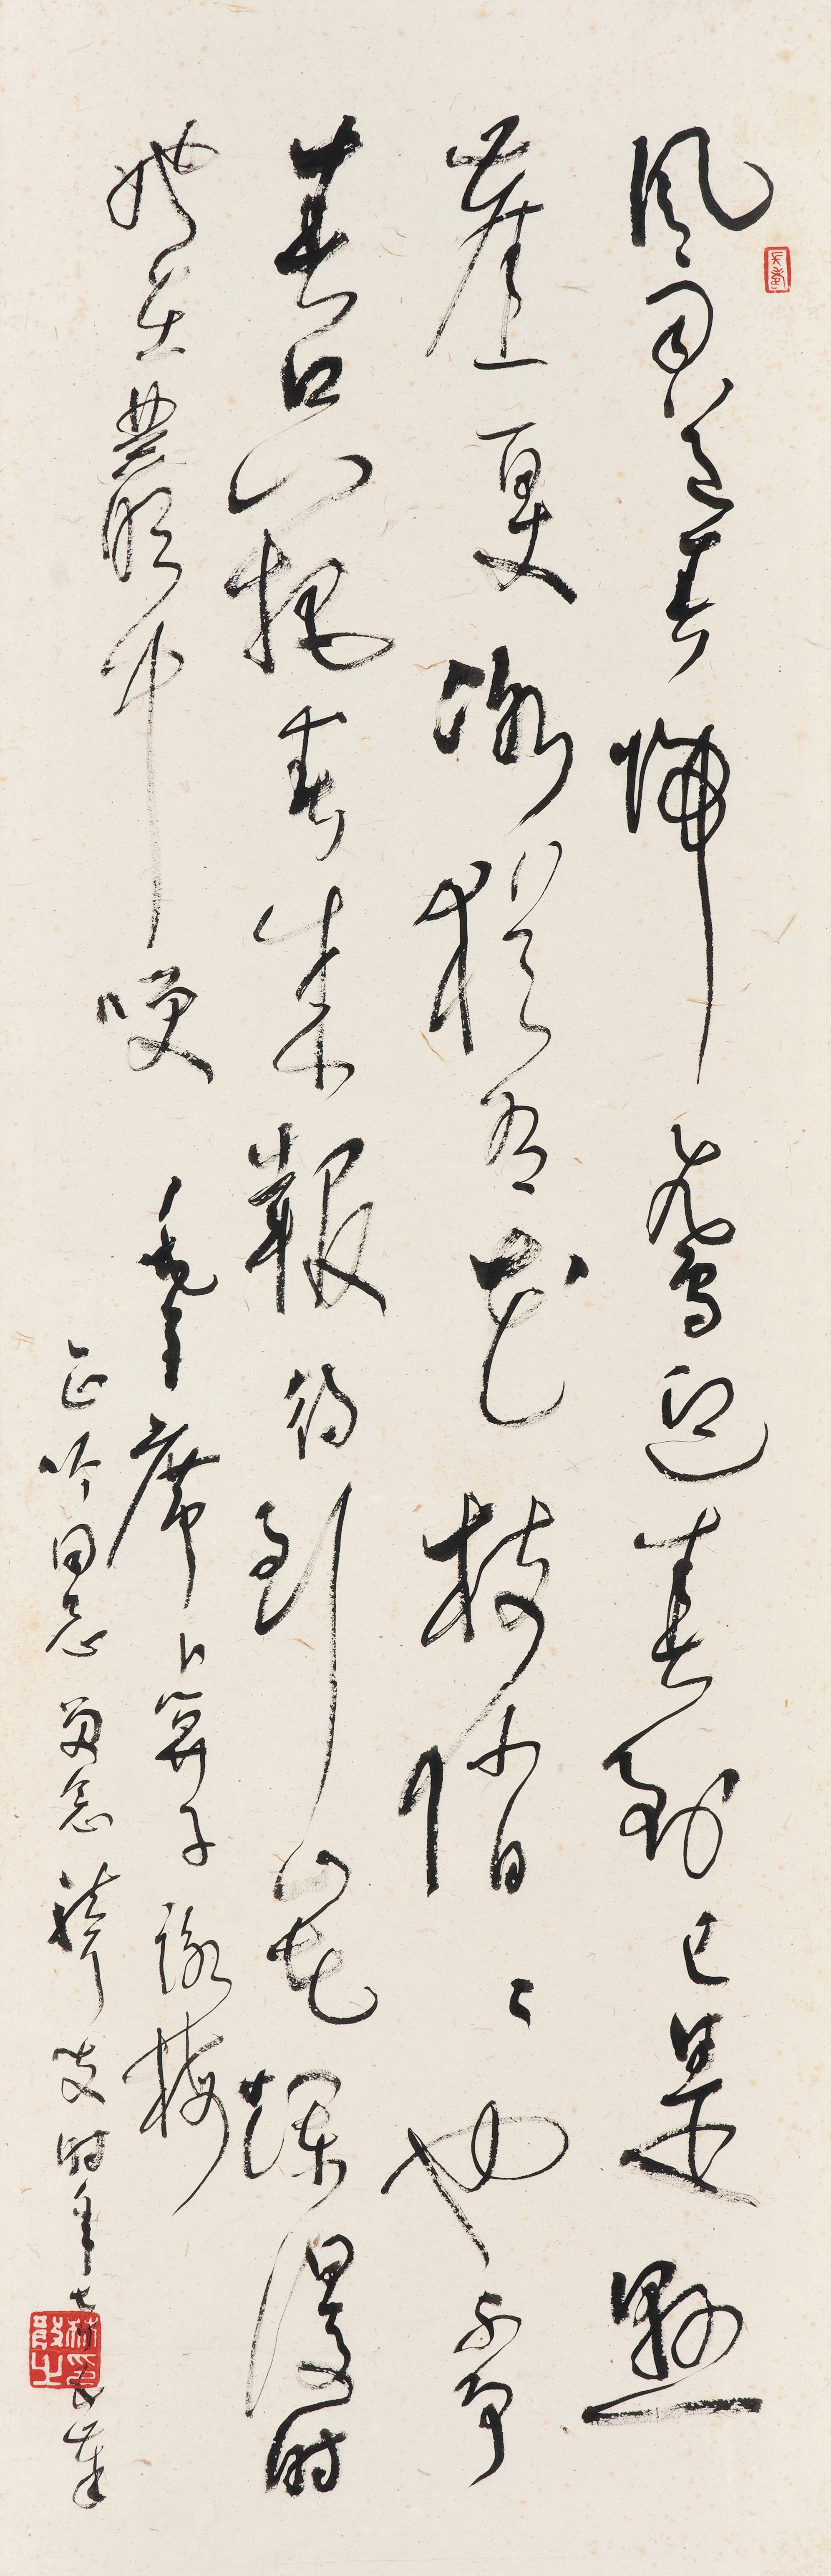 風雨送春歸飛雪迎春到已是懸
崖百丈冰猶有花枝俏俏〻也不爭
春只把春來報待到山花爛漫時
她在叢中笑 毛主席卜算子詠梅
正吟同志留念 時年七十
林散之印